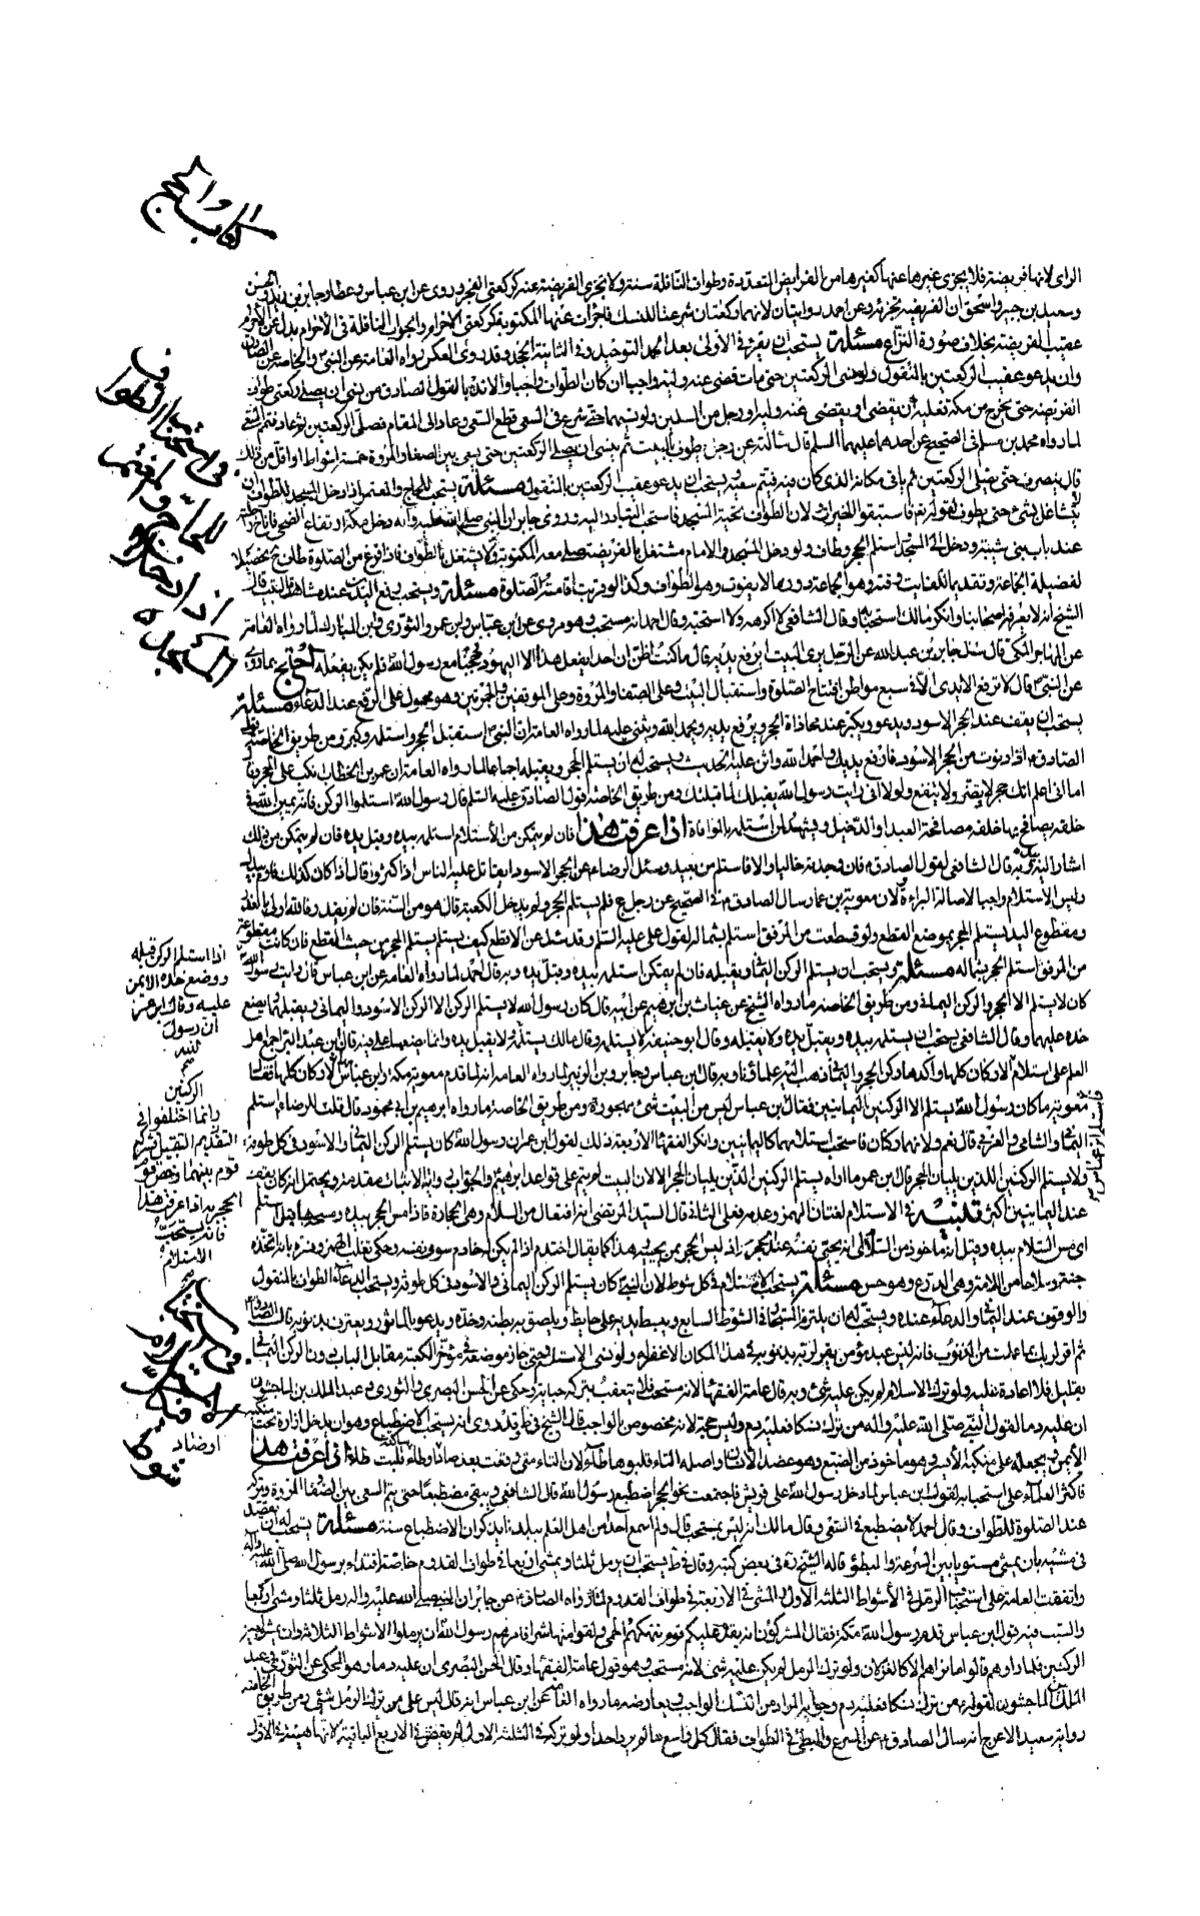 كتاب الحج
الراى لانها فريضة فلا يجزى غيرها عنها كغيرها من الفرايض المتعددة وطواف النافلة سنة ولا تجزى الفريضة عنه كركعتى الفجر وروى عن ابن عباس وعطا وجابر بن زيد والحسن
وسعيد بن جبير واسحق ان الفريضة تجزئه وعن احمد روايتان لانهما ركعتان شرعتا للنسك فاجزأت عنهما المكتوبة كركعتى الاحرام والجواب النافلة فى الاحرام بدل عن الاحرام
عقيب الفريضة بخلاف صورة النزاع مسئلة يستحب ان يقرء فى الاولى بعد الحمد التوحيد وفى الثانية الجحد وقد روى العكس رواه العامة عن النبى والخاصة عن الصادق
وان يدعو عقيب الركعتين بالمنقول ولو نسى الركعتين حتى مات قضى عنه وليه واجبا ان كان الطواف واجبا والا ندبا لقول الصادق من نسى ان يصلى ركعتى طواف
الفريضة حتى خرج من مكة فعليه ان يقضى او يقضى عنه وليه او رجل من المسلمين ولو نسيهما حتى شرع فى السعى قطع السعى وعاد الى المقام فصلى الركعتين ثم عاد فتمم السعى
لما رواه محمد بن مسلم فى الصحيح عن احدهما عليهما السلم قال سألته عن رجل يطوف بالبيت ثم ينسى ان يصلى الركعتين حتى يسعى بين الصفا والمروة خمسة اشواط او اقل من ذلك
قال ينصرف حتى يصلى الركعتين ثم ياتى مكانه الذى كان فيه فيتم سعيه ويستحب ان يدعو عقيب الركعتين بالمنقول مسئلة يستحب للحاج والمعتمر اذا دخل المسجد للطواف ان
لا يتشاغل بشىء حتى يطوف لقوله تع فاستبقوا الخيرات لان الطواف تحية المسجد فاستحب التبادر اليه وروى جابر ان النبى صلى الله عليه وآله دخل مكة ارتفاع الضحى فاناخ راحلته
عند باب بنى شيبة ودخل الى المسجد استلم الحجر وطاف ولو دخل المسجد والامام مشتغل بالفريضة صلى معه المكتوبة ولا يشتغل بالطواف فاذا فرغ من الصلوة طاف تحصيلا
لفضيلة الجماعة وتقديما للفايت وقته وهو الجماعة دون ما لا يفوت وهو الطواف وكذا لو قربت اقامة الصلوة مسئلة ويستحب رفع اليدين عند مشاهدة البيت قال
الشيخ انه لا يعرفه اصحابنا وانكر مالك استحبابه وقال الشافعى لا اكرهه ولا استحبه وقال احمد انه مستحب وهو مروى عن ابن عباس وابن عمر والثورى وابن المبارك لما رواه العامة
عن المهاجر المكى قال سئل جابر بن عبد الله عن الرجل يرى البيت ايرفع يديه قال ما كنت اظن ان احدا يفعل هذا الا اليهود حججنا مع رسول الله فلم يكن يفعله احتج بما روى
عن النبى قال لا ترفع الايدى الا فى سبع مواطن افتتاح الصلوة واستقبال البيت وعلى الصفا والمروة وعلى الموقفين والجمرتين وهو محمول على الرفع عند الدعاء مسئلة
يستحب ان يقف عند الحجر الاسود ويدعو ويكبر عند محاذاة الحجر ويرفع يديه ويحمد الله ويثنى عليه لما رواه العامة ان النبى استقبل الحجر واستلمه وكبر ومن طريق الخاصة قول
الصادق اذا دنوت من الحجر الاسود فارفع يديك واحمد الله واثن عليه الحديث ويستحب له ان يستلم الحجر ويقبله اجماعا لما رواه العامة ان عمر بن الخطاب انكب على الحجر وقال
اما انى اعلم انك حجر لا يضر ولا ينفع ولولا انى رايت رسول الله يقبلك لما قبلتك ومن طريق الخاصة قول الصادق عليه السلم قال رسول الله استلموا الركن فانه يمين الله فى
خلقه يصافح بها خلقه مصافحة العبد او الدخيل ويشهد لمن استلمه بالموافاة اذا عرفت هذا فان لم يتمكن من الاستلام استلمه بيده وقبل يده فان لم يتمكن من ذلك
اشار اليه بيده قال الشافعى لقول الصادق فان وجدته خاليا والا فاستلم من بعيد وسئل الرضا عن الحجر الاسود ايقاتل عليه الناس اذا كثروا قال اذا كان كذلك فاوم بيدك
وليس الاستلام واجبا لاصالة البراءة ولان معوية بن عمار سال الصادق فى الصحيح عن رجل حج فلم يستلم الحجر ولم يدخل الكعبة قال هو من السنة فان لم يقدر فالله اولى بالعذر
ومقطوع اليد يستلم الحجر بموضع القطع ولو قطعت من المرفق استلم بشماله لقول على عليه السلم وقد سئل عن الاقطع كيف يستلم يستلم الحجر من حيث القطع فان كانت مقطوعة
من المرفق استلم الحجر بشماله مسئلة ويستحب ان يستلم الركن اليمانى ويقبله فان لم يتمكن استلمه بيده وقبل يده وبه قال احمد لما رواه العامة عن ابن عباس قال رايت رسول الله
كان لا يستلم الا الحجر والركن اليمانى ومن طريق الخاصة ما رواه الشيخ عن غياث بن ابرهيم عن ابيه قال كان رسول الله لا يستلم الركن الا الركن الاسود واليمانى ويقبلهما ويضع
خده عليهما وقال الشافعى يستحب ان يستلمه بيده ويقبل يده ولا يقبله وقال ابو حنيفة لا يستلمه وقال مالك يستلمه ولا يقبل يده وانما يضعها على فيه قال ابن عبد البر اجمع اهل
العلم على استلام الاركان كلها وآكدها ركن الحجر واليمانى ذهب اليه علماؤنا وبه قال ابن عباس وجابر وابن الزبير لما رواه العامة انه لما قدم معوية مكة وابن عباس الاركان كلها فقال
معوية ما كان رسول الله يستلم الا الركنين اليمانيين فقال ابن عباس ليس من البيت شىء مهجور ومن طريق الخاصة ما رواه ابرهيم بن ابى محمود قال قلت للرضا استلم
اليمانى والشامى والغربى قال نعم ولانهما ركنان فاستحب استلامهما كاليمانيين وانكر الفقهاء الاربعة ذلك لقول ابن عمر ان رسول الله كان يستلم الركن اليمانى والاسود فى كل طوفة
ولا يستلم الركنين اللذين يليان الحجر قال ابن عمر ما اراه يستلم الركنين اللذين يليان الحجر الا لان البيت لم يتم على قواعد ابرهيم والجواب رواية الاثبات مقدمة ويحتمل انه كان يقف
عند اليمانيين اكثر تنبيه فى الاستلام لغتان الهمز وعدمه فعلى الثانى قال السيد المرتضى انه افتعال من السلام وهى الحجارة فاذا مس الحجر بيده ومسحه بها قيل استلم
اى مس السلام بيده وقيل انه ماخوذ من السلام اى انه يحيى نفسه عند الحجر اذ ليس الحجر ممن يحييه هذا كما يقال اختدم اذا لم يكن له خادم سوى نفسه وحكى تغلب الهمز وفسره بانه اتخذه
جنة وسلاحا من اللامة وهى الدرع وهو حسن مسئلة يستحب الاستلام فى كل شوط لان النبى كان يستلم الركن اليمانى والاسود فى كل طوفة ويستحب الدعاء فى الطواف بالمنقول
والوقوف عند اليمانى والدعاء عنده ويستحب له ان يلتزم المستجار فى الشوط السابع ويبسط يديه على حايطه ويلصق به بطنه وخده ويدعو بالماثور ويعترف بذنوبه قال الصادق
ثم اقر لربك بما عملت من الذنوب فانه ليس عبد مؤمن يقر لربه بذنوبه فى هذا المكان الا غفر له ولو نسى الالتزام حتى جاز موضعه فى مؤخر الكعبة مقابل الباب دون الركن اليمانى
بقليل فلا اعادة عليه ولو ترك الاستلام لم يكن عليه شىء وبه قال عامة الفقهاء لانه مستحب فلا يتعقب بتركه جناية وحكى عن الحسن البصرى والثورى وعبد الملك بن الماجشون
ان عليه دما لقول النبى صلى الله عليه واله من ترك نسكا فعليه دم وليس حجة لانه مخصوص بالواجب قال الشيخ فى ط قد روى انه يستحب الاضطباع وهو ان يدخل ازاره تحت منكبه
الايمن ويجعله على منكبه الايسر وهو ماخوذ من الضبع وهو عضد الانسان واصله التاء فقلبوها طاء لان التاء متى وقعت بعد صاد او ضاد او طاء ساكنة قلبت طاء اذا عرفت هذا
فاكثر العلماء على استحبابه لقول ابن عباس لما دخل رسول الله على قريش فاجتمعت نحو الحجر اضطبع رسول الله قال الشافعى ويبقى مضطبعا حتى يتم السعى بين الصفا والمروة ويتركه
عند الصلوة للطواف وقال احمد لا يضطبع فى السعى وقال مالك انه ليس بمستحب قال ولم اسمع احدا من اهل العلم ببلدنا يذكر ان الاضطباع سنة مسئلة يستحب له ان يقصد
فى مشيه بان يمشى مستويا بين السرعة والبطؤ قاله الشيخ ره فى بعض كتبه وقال فى ط يستحب ان يرمل ثلثا ويمشى اربعا فى طواف القدوم خاصة اقتداء برسول الله صلى الله عليه وآله
واتفقت العامة على استحباب الرمل فى الاشواط الثلثة الاول والمشى فى الاربعة فى طواف القدوم لما رواه الصادق عن جابر ان النبى صلى الله عليه واله رمل ثلثا ومشى اربعا
والسبب فيه قول ابن عباس قدم رسول الله مكة فقال المشركون انه يقدم عليكم قوم نهكتهم الحمى ولقوا منها شرا فامرهم رسول الله ان يرملوا الاشواط الثلاثة وان يمشوا بين
الركنين فلما راوهم قالوا ما نراهم الا كالغزلان ولو ترك الرمل لم يكن عليه شىء لانه مستحب وهو قول عامة الفقهاء وقال الحسن البصرى ان عليه دما وهو المحكى عن الثورى وعبد
الملك الماجشون لقوله من ترك نسكا فعليه دم وجوابه المراد عن النسك الواجب ويعارضه ما رواه العامة عن ابن عباس انه قال ليس على من ترك الرمل شىء ومن طريق الخاصة
رواية سعيد الاعرج انه سال الصادق عن المسرع والمبطئ فى الطواف فقال كل واسع ما لم يؤذ احدا ولو تركه فى الثلثة الاول لم يقض فى الاربع الباقية لانها هيئة فى الاول
فى استحباب الطواف
للحاج والمعتمر
اذا دخل
المسجد
اذا استلم الركن قبله
ووضع خده الايمن
عليه وقال ابن عمر
ان رسول
الله
الركنين
وانما اختلفوا فى
التقديم التقبيل فشركه
قوم بينهما وخص قوم
الحجر به اذا عرفت هذا
فانه يستحب
الاستلام
فى استحباب
الاستلام
فى كل
شوط
او ضاد
فاستلم ابن عباس